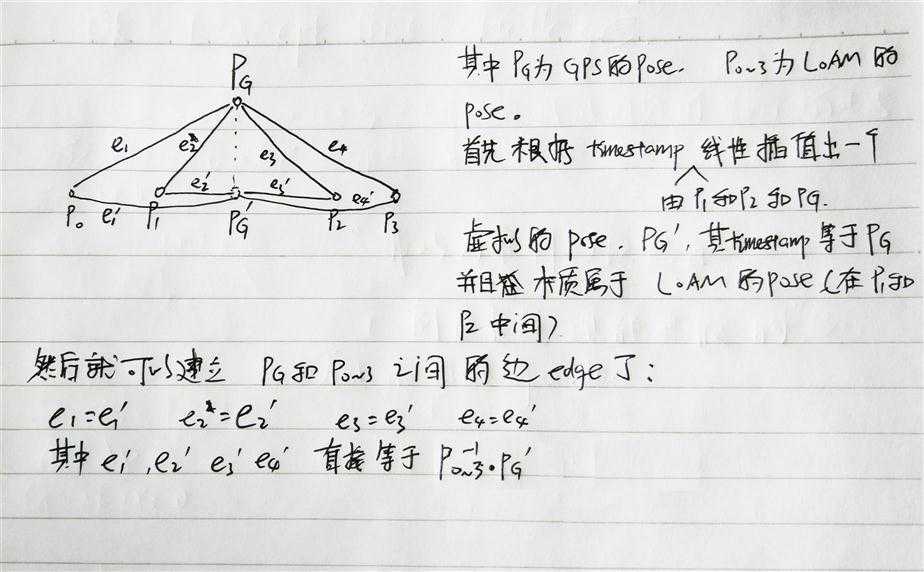 PG
e1 e2 e3 e4
e2' e3' e4'
P0 e1' P1 PG' P2 P3
其中PG为GPS的pose. P0~3为LOAM的
pose。
首先根据timestamp线性插值出一个
由P1和P2和PG.
虚拟的pose. PG',其timestamp等于PG
并且 本质属于 LOAM的pose(在P1和
P2中间)
然后就可以建立 PG和P0~3之间的边edge了:
e1=e1' e2=e2' e3=e3' e4=e4'
其中e1',e2' e3' e4' 直接等于 P0~3⁻¹·PG'